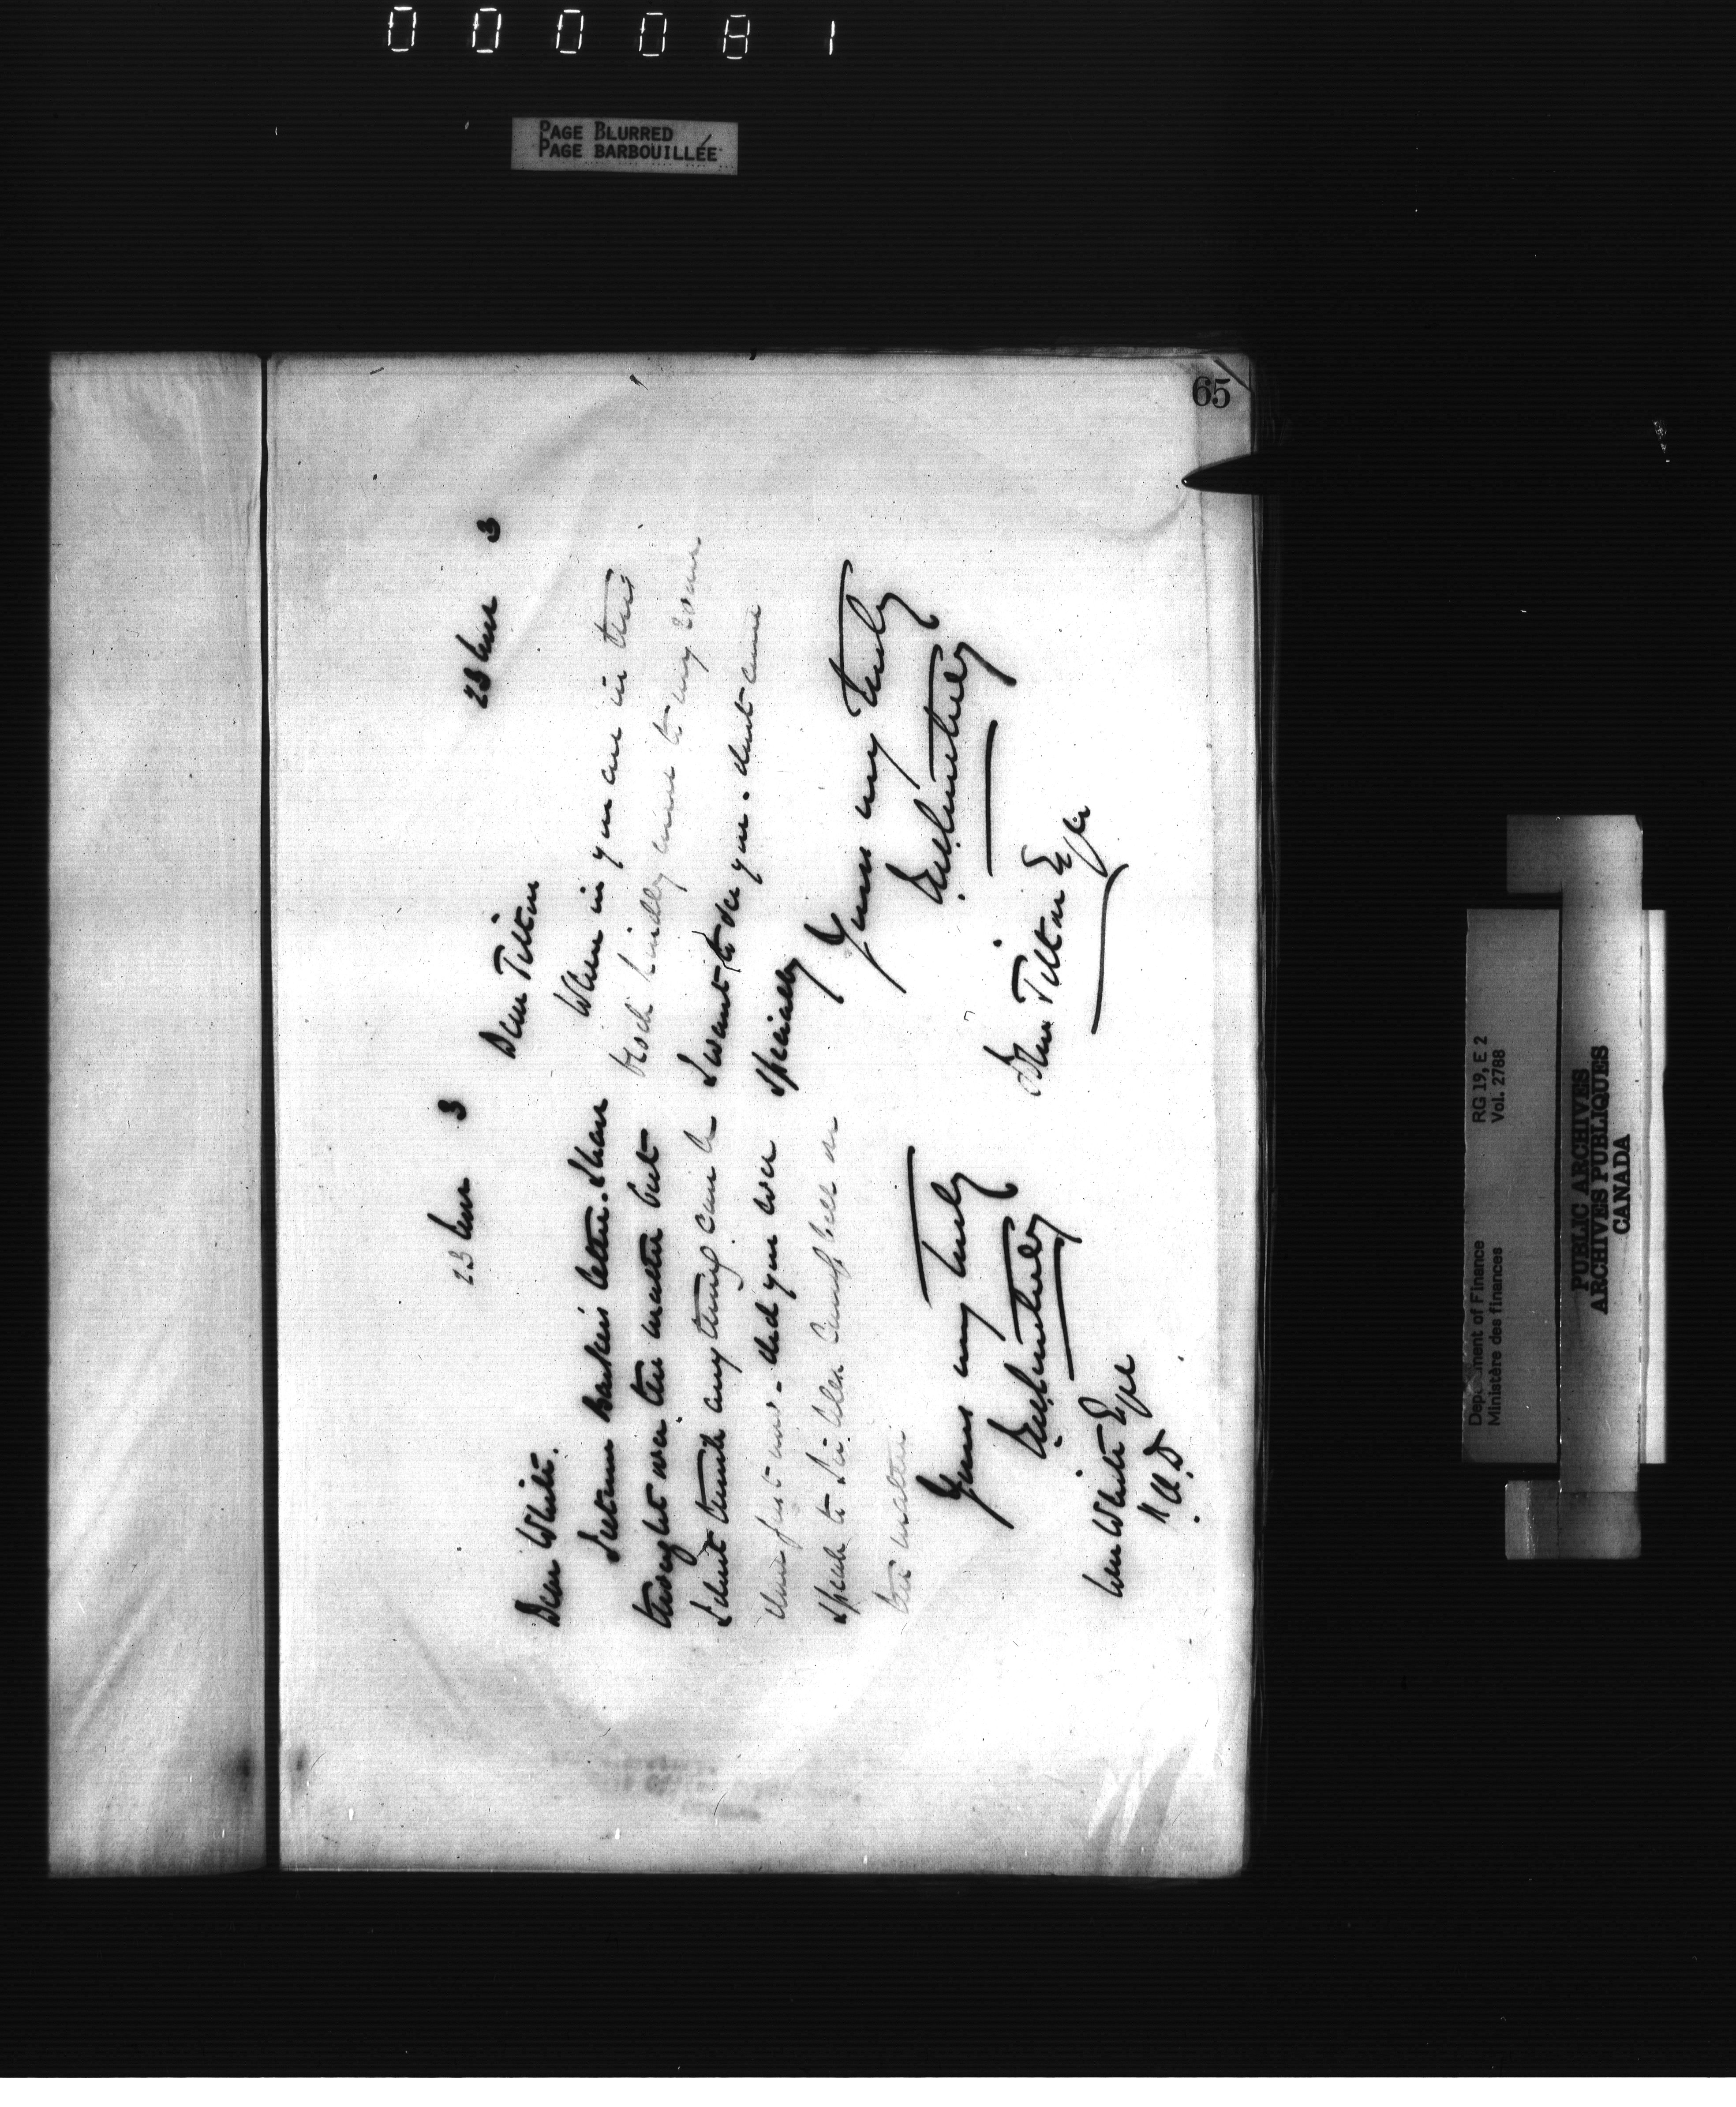 000081
PAGE BLURRED
PAGE BARBOUILLÉE
65
23 June 3
Dear White.
Return Barker's letter. I have
thought over the matter but
I dont think anything can be
done just now. Did you ever
speak to Sir Alex Campbell on
the matter
Yours very truly
Wm White Esqre
23 June 3
Dear Tilton
When in you are in this
kindly come to my room
I want to see you. dont come
specially
Yours very truly
John Tilton Esqre
Department of Finance RG 19, E 2
Ministère des finances Vol. 2788
PUBLIC ARCHIVES
ARCHIVES PUBLIQUES
CANADA